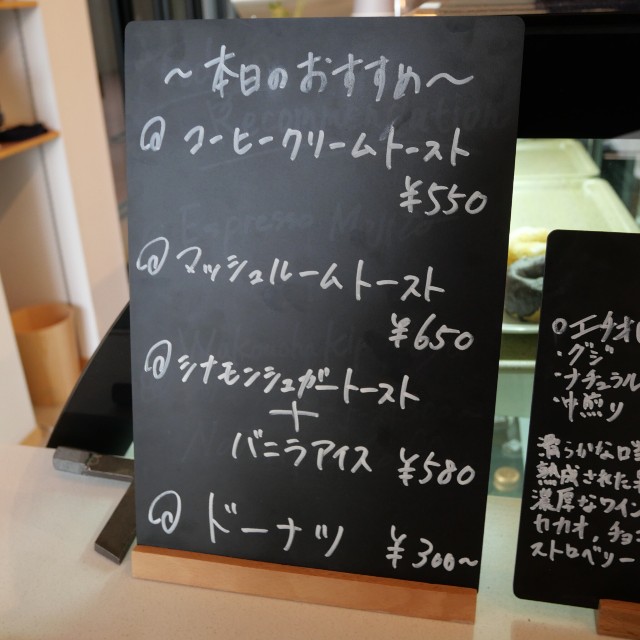 ～本日のおすすめ～
@ コーヒークリームトースト
￥550
@ マッシュルームトースト
￥650
@ シナモンシュガートースト
+
バニラアイス ￥580
@ ドーナツ
￥300～
・グジ
・ナチュラル
・中煎り
熟成された
濃厚なワイン
カカオ,チョコ
ストロベリー